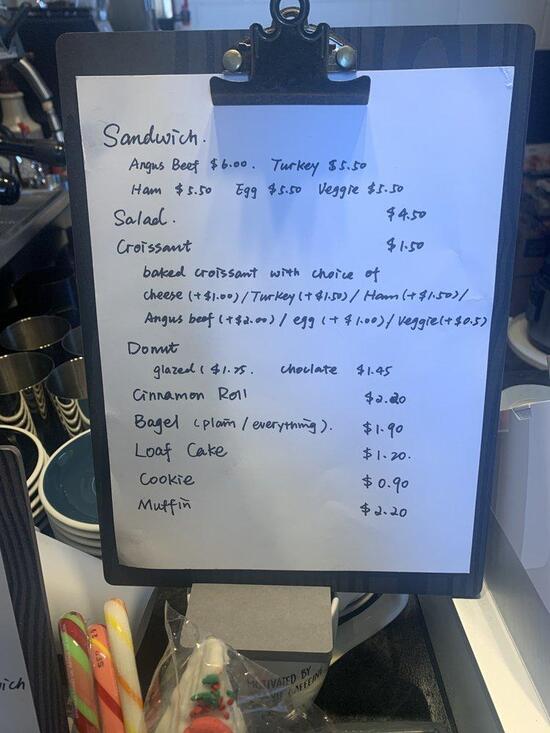 Sandwich.
Angus Beef $6.00. Turkey $5.50
Ham $5.50 Egg $5.50 Veggie $5.50
Salad. $4.50
Croissant $1.50
baked croissant with choice of
cheese (+$1.00) / Turkey (+$1.50) / Ham (+$1.50) /
Angus beef (+$2.00) / egg (+$1.00) / Veggie (+$0.5)
Donut
glazed ( $1.25. choclate $1.45
Cinnamon Roll $2.20
Bagel (plain / everything). $1.90
Loaf Cake $1.20.
Cookie $0.90
Muffin $2.20
MOTIVATED BY
CAFFEINE
wich